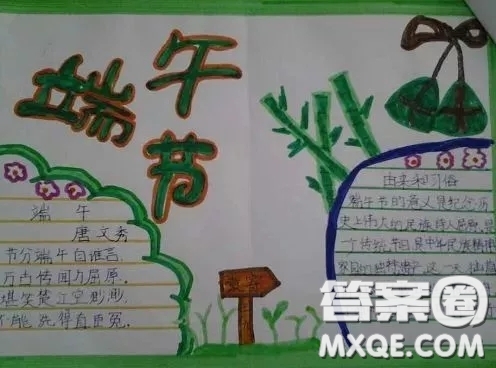 端午节
端 午
唐 文秀
节分端午自谁言
万古传闻为屈原.
堪笑楚江空渺渺,
不能洗得直臣冤.
由来和习俗
端午节的意义是纪念历
史上伟大的民族诗人屈原,是
一个传统节日,是中华民族精神
答案圈
MXQE.COM